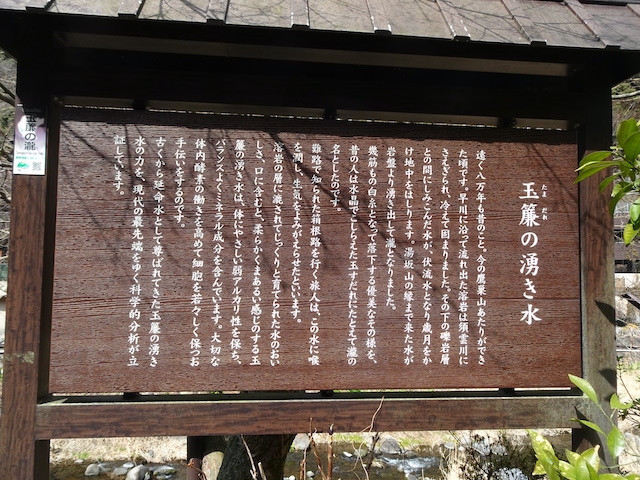 玉簾の湧き水
たま だれ
遠く八万年も昔のこと。今の鷹巣山あたりができ
た頃です。早川に沿って流れ出た溶岩は須雲川に
さえぎられ、冷えて固まりました。その下の礫岩層
との間にしみこんだ水が、伏流水となり歳月をか
け地中をはしります。湯坂山の縁まで来た水が
岩盤より湧き出し、瀧となりました。
幾筋もの白糸となって落下する優美なその様を、
昔の人は水晶でこしらえた玉すだれにたとえて瀧の
名としたのです。
難路で知られた箱根路を行く旅人は、この水に喉
を潤し、生気をよみがえらせたといいます。
溶岩の層に漉されてじっくりと育てられた水のおい
しさ、口に含むと、柔らかくまあるい感じのする玉
簾の湧き水は、体にやさしい弱アルカリ性を保ち、
バランスよくミネラル成分を含んでいます。大切な
体内酵素の働きを高めて細胞を若々しく保つお
手伝いをするのです。
古くから延命水として尊ばれてきた玉簾の湧き
水の力を、現代の最先端をゆく科学的分析が立
証しています。
玉簾の瀧